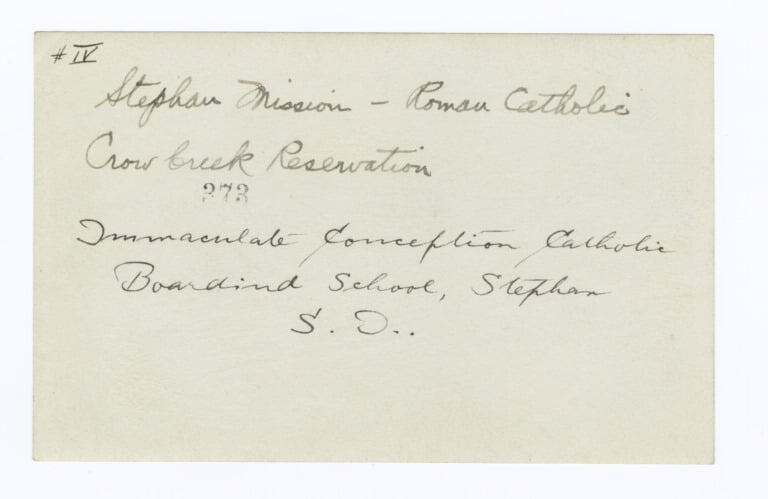 # IV
Stephan Mission – Roman Catholic
Crow Creek Reservation
373
Immaculate Conception Catholic
Boardind School, Stephan
S. D..